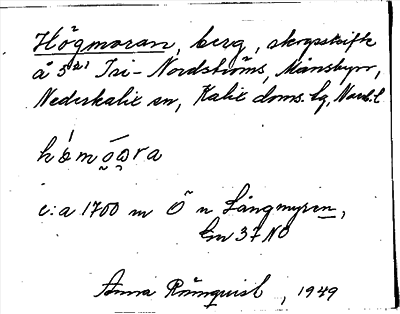 Högmoran, berg, skogsskifte
å 5²¹ Tri-Nordströms, Månsbyn,
Nederkalix sn, Kalix doms. lg, Norrb. l.
c:a 1700 m Ö n Långmyren,
Gm 37 NO
Anna Rönnquist, 1949